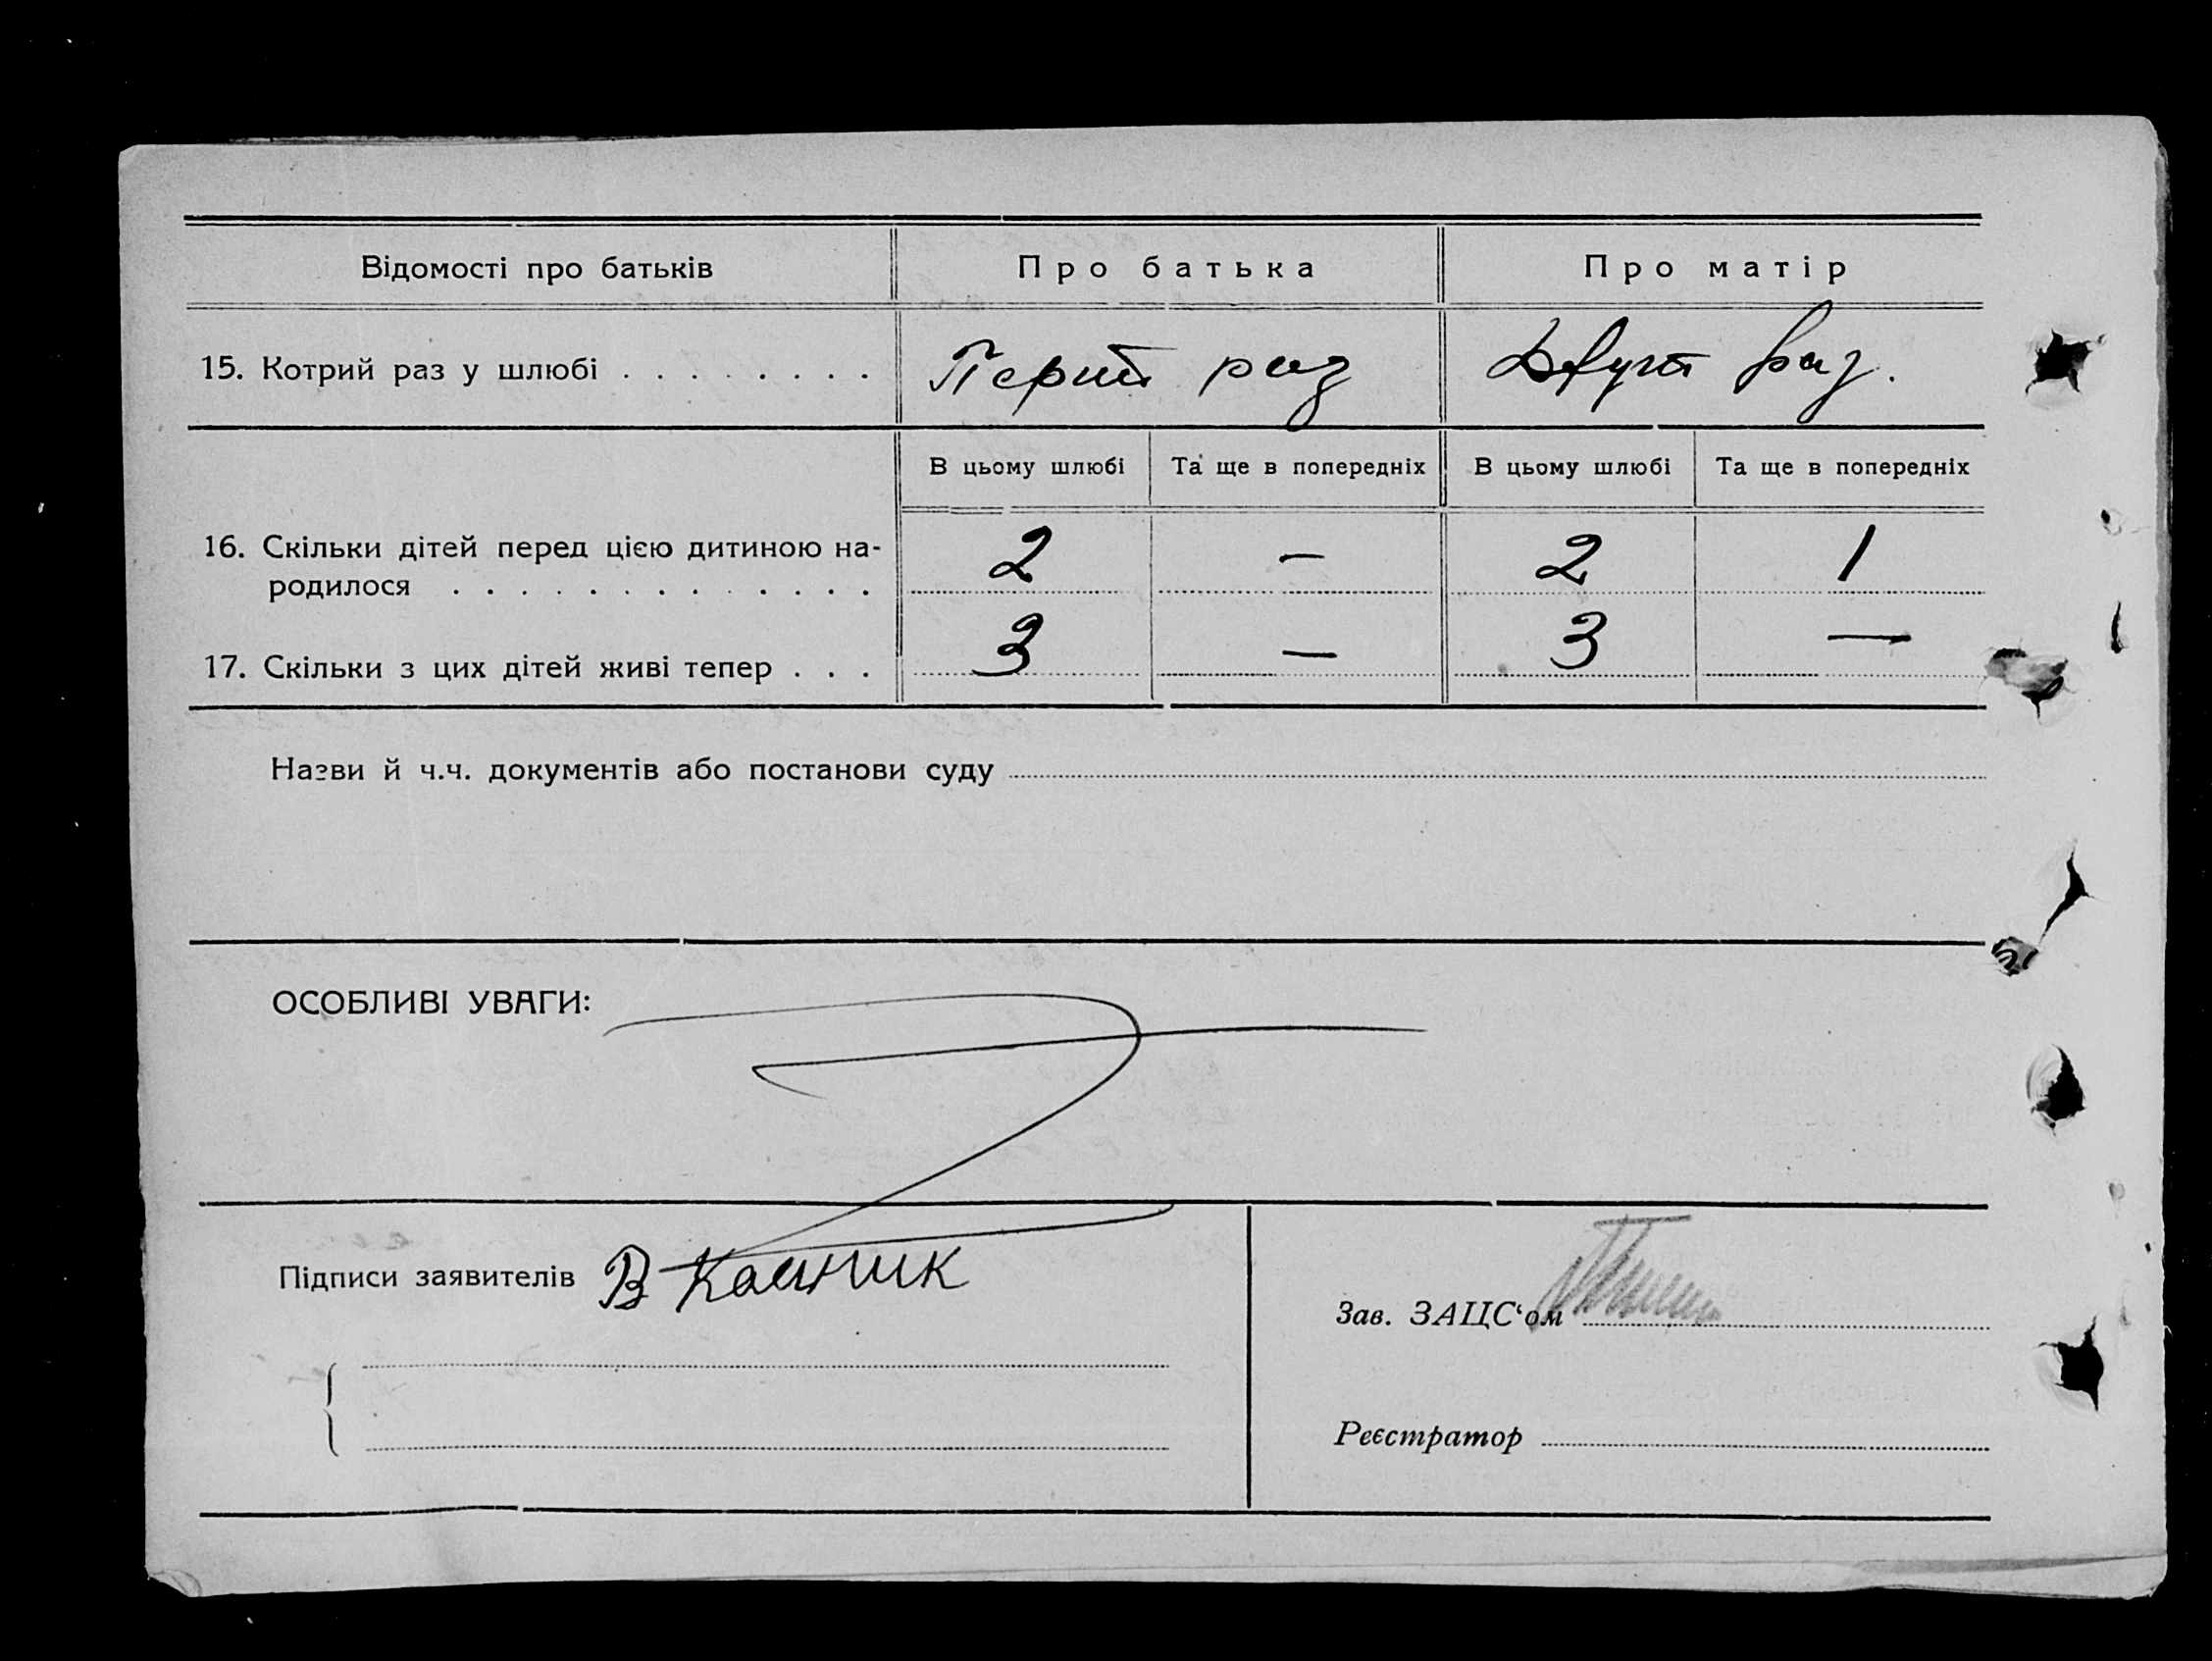 Відомості про батьків Про батька Про матір
15. Котрий раз у шлюбі . . . . . . . . раз раз.
В цьому шлюбі Та ще в попередніх В цьому шлюбі Та ще в попередніх
16. Скільки дітей перед цією дитиною на-
родилося . . . . . . . . . . . . . 2 – 2 1
17. Скільки з цих дітей живі тепер . . . 3 — 3 —
Назви й ч.ч. документів або постанови суду
ОСОБЛИВІ УВАГИ:
Підписи заявителів В
Зав. ЗАЦС‘ом
Реєстратор